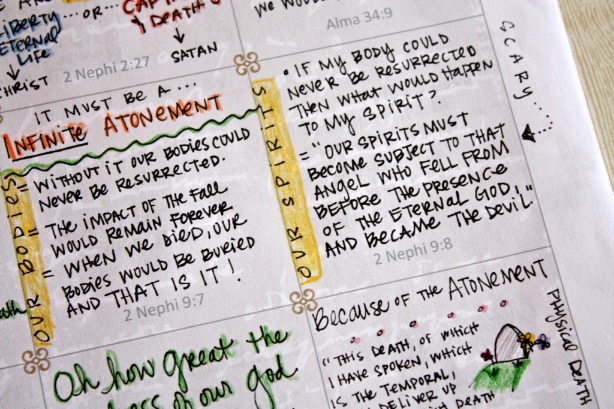 LIBERTY
ETERNAL
LIFE
OR
& DEATH
CHRIST
SATAN
2 Nephi 2:27
Alma 34:9
IT MUST BE A...
INFINITE ATONEMENT
OUR BODIES
= WITHOUT IT OUR BODIES COULD
NEVER BE RESURRECTED.
= THE IMPACT OF THE FALL
WOULD REMAIN FOREVER
= WHEN WE DIED, OUR
BODIES WOULD BE BURIED
AND THAT IS IT!
2 Nephi 9:7
OUR SPIRITS
• IF MY BODY COULD
NEVER BE RESURRECTED
THEN WHAT WOULD HAPPEN
TO MY SPIRIT?
= "OUR SPIRITS MUST
BECOME SUBJECT TO THAT
ANGEL WHO FELL FROM
BEFORE THE PRESENCE
OF THE ETERNAL GOD,
AND BECAME THE DEVIL."
2 Nephi 9:8
SCARY....
Oh how great the
of our god
Because OF THE ATONEMENT
"THIS DEATH, OF WHICH
I HAVE SPOKEN, WHICH
IS THE TEMPORAL,
DELIVER UP
DEATH
PHYSICAL DEATH